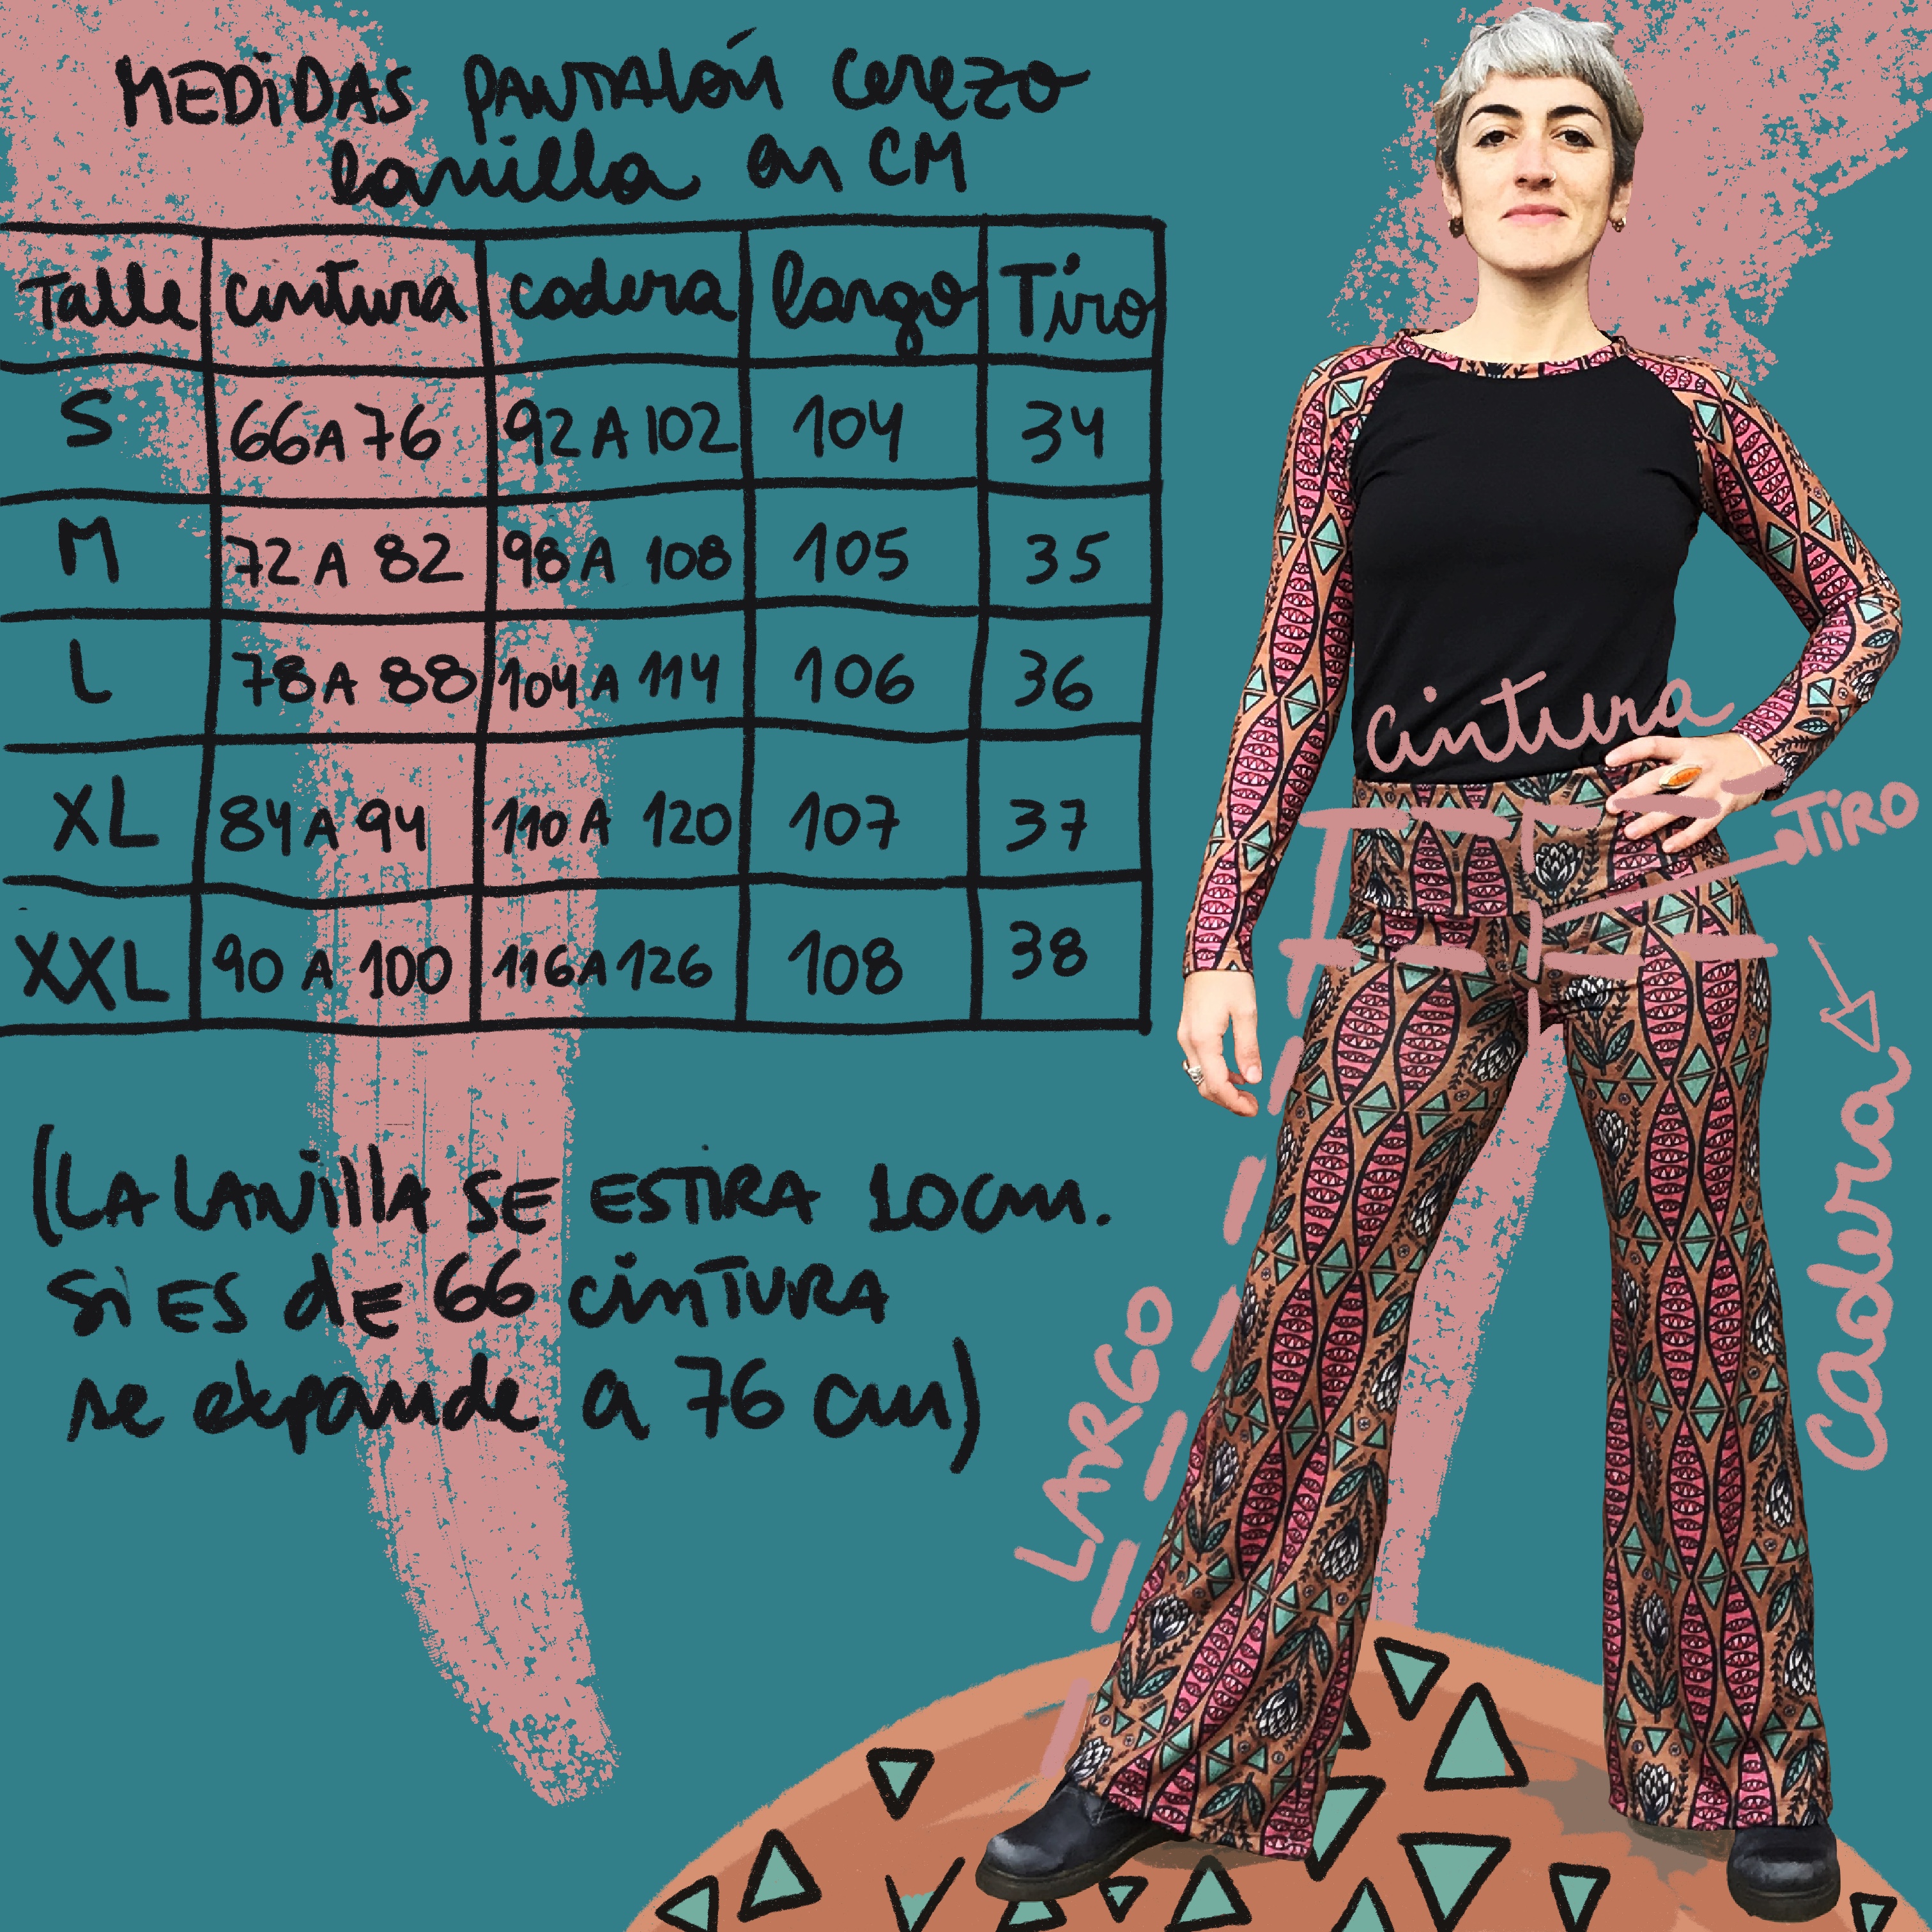 MEDiDAS PANTAlóN Cerezo
lanilla en CM
Talle cintura cadera largo Tiro
S 66 A 76 92 A 102 104 34
M 72 A 82 98 A 108 105 35
L 78 A 88 104 A 114 106 36
XL 84 A 94 110 A 120 107 37
XXL 90 A 100 116 A 126 108 38
(LA LANillA SE ESTIRA 10cm.
Si ES dE 66 CiNTURA
se expande a 76 cm)
cintura
TiRO
cadera
LARGO